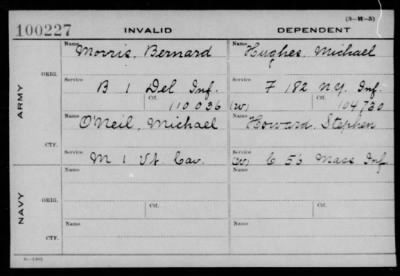 (3—M—5)
100227 INVALID DEPENDENT
Name Morris, Bernard Name Hughes, Michael
ARMY
ORIG.
Service B 1 Del Inf. Service F 182 N.Y. Inf.
Ctf. 110,036 (W) Ctf. 104,720
Name O'Neil, Michael Name Howard, Stephen
CTF.
Service M 1 Vt. Cav. (W) Service C 56 Mass Inf
NAVY
Name Name
ORIG.
Service Ctf. Service Ctf.
Name Name
CTF.
Service Service